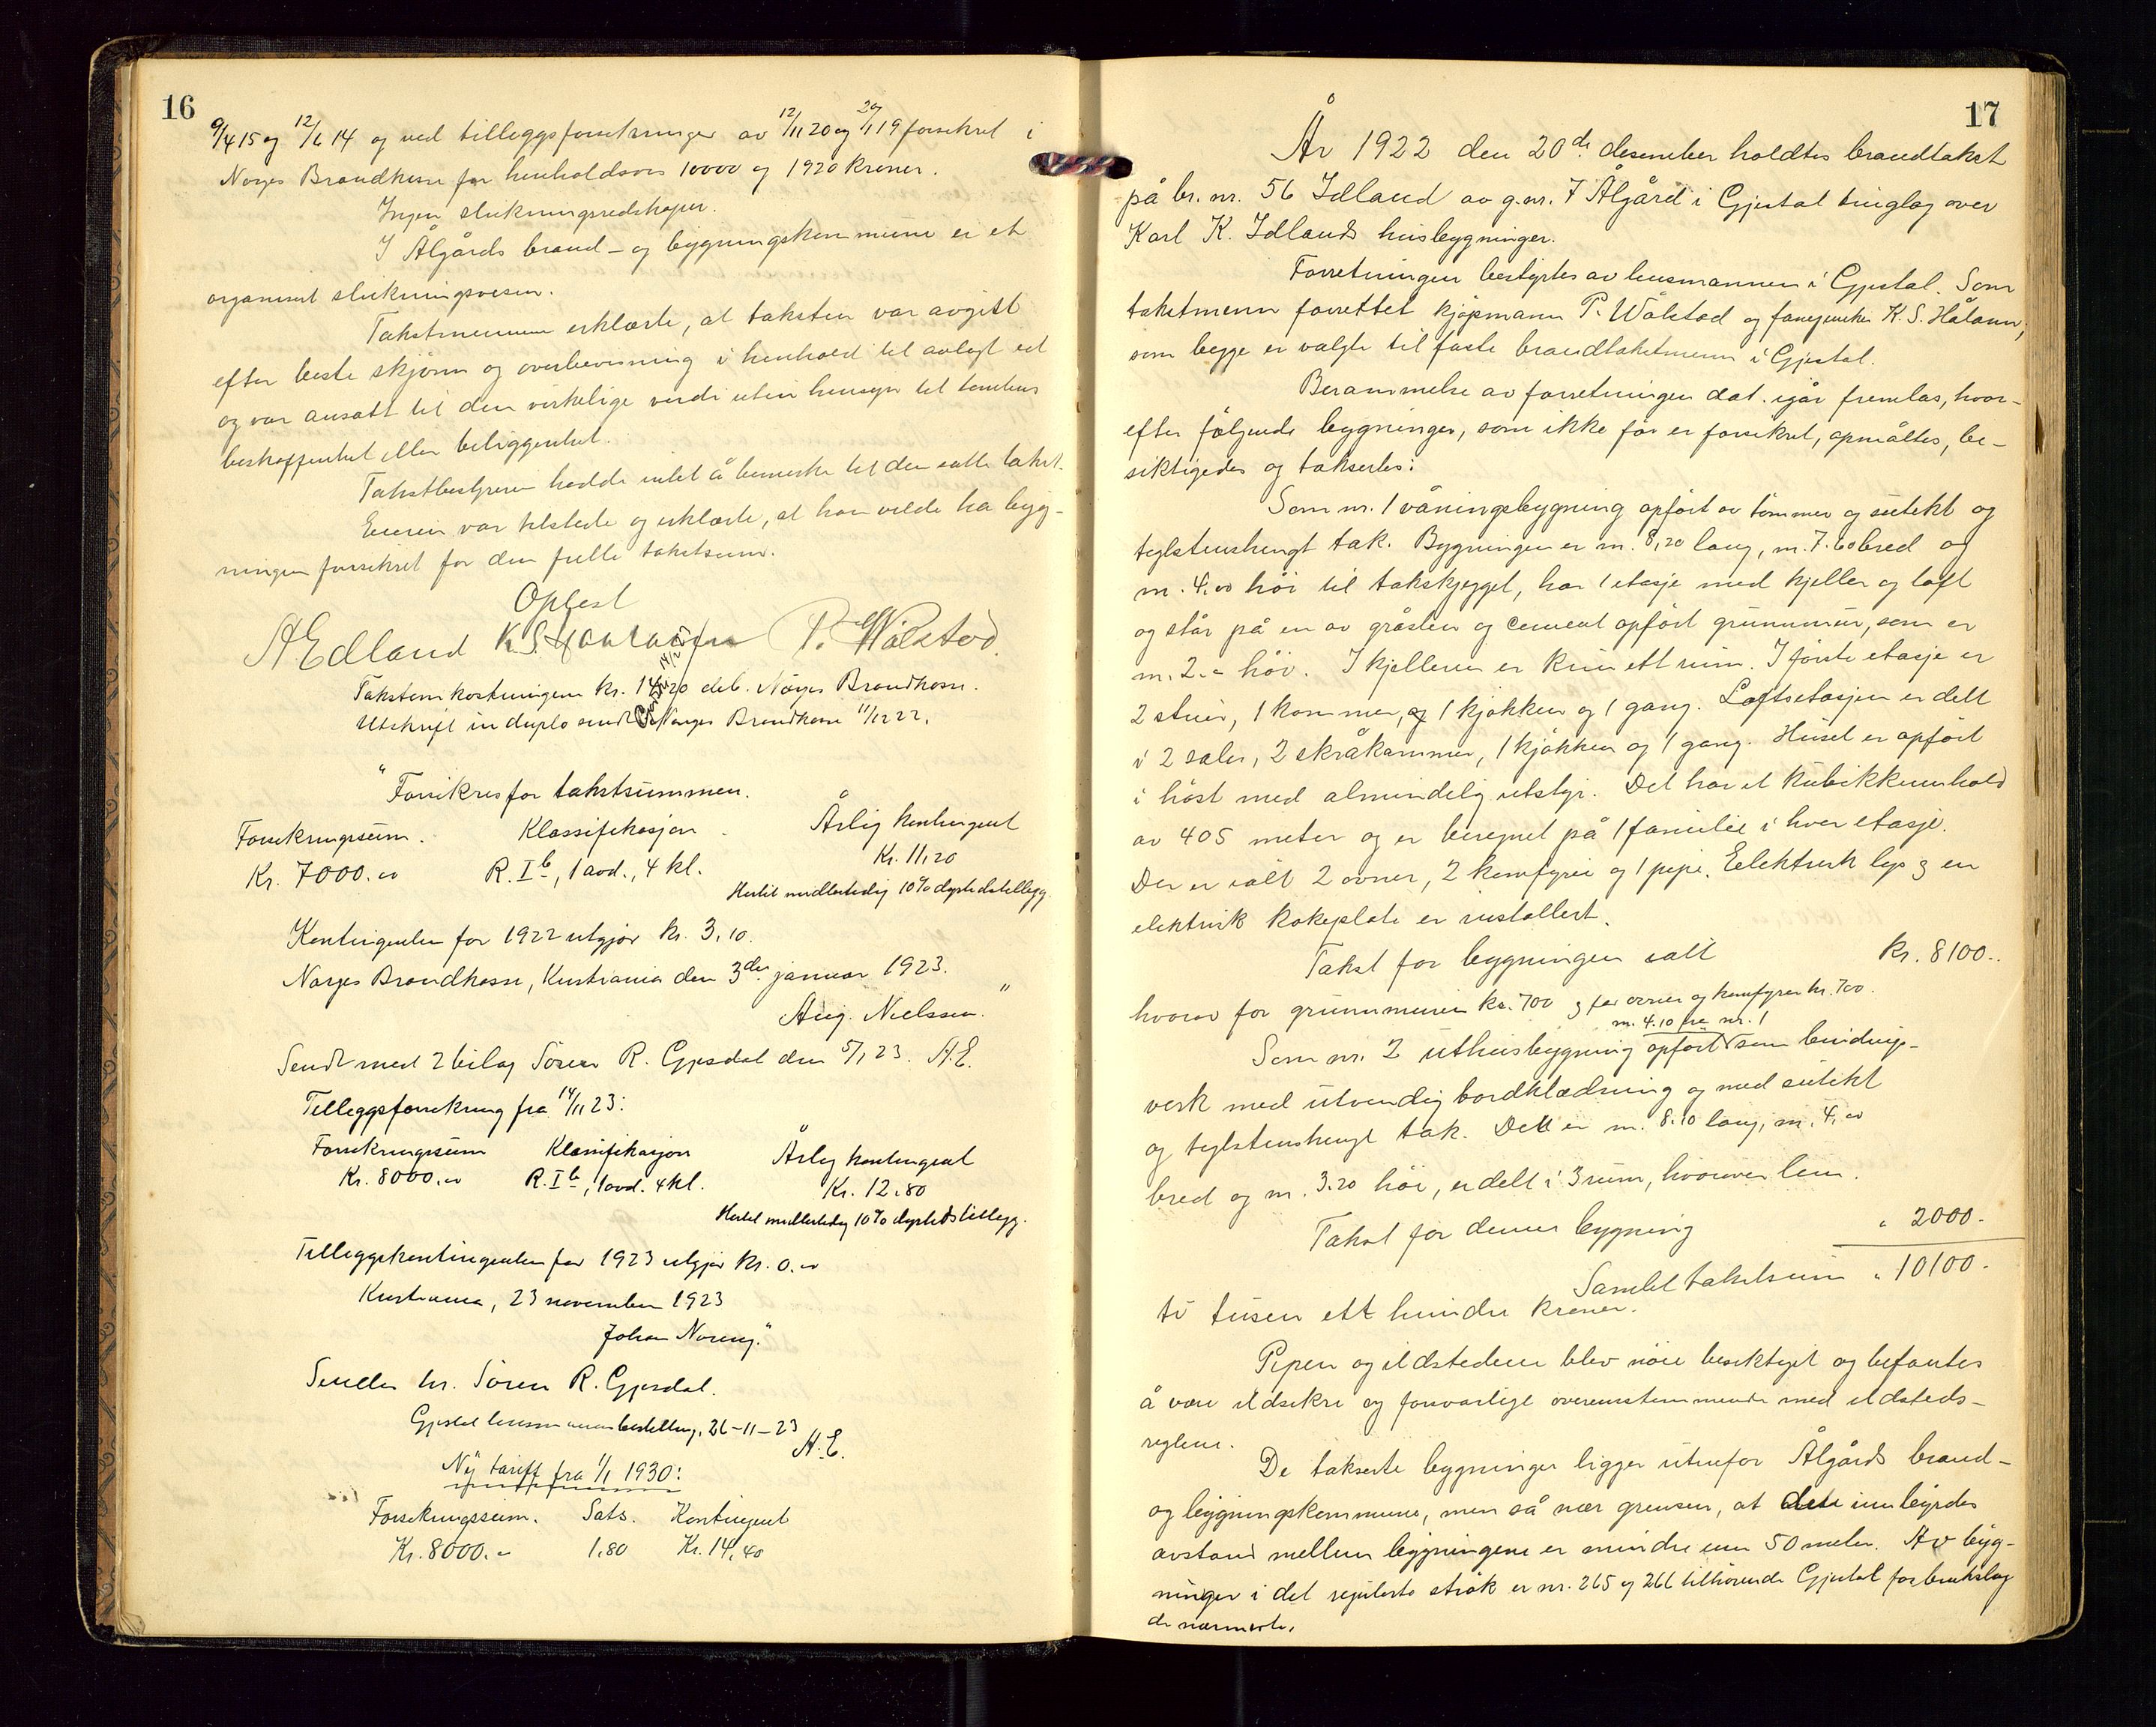 16
9/4 15 og 12/6 14 og ved tilleggsforretninger av 12/11 20 og 29/1 19 forsikret i
Norges Brandkasse for henholdsvis 10000 og 1920 kroner.
Ingen slukningsredskaper.
I Ålgårds brand- og bygningskommune er et
organisert slukningsvesen.
Takstmennene erklærte, at taksten var avgitt
efter beste skjønn og overbevisning i henhold til avlagt ed
og var ansatt til den virkelige verdi uten hensyn til tomtens
beskaffenhet eller beliggenhet.
Takstbestyreren hadde intet å bemerke til den satte takst.
Eieren var tilstede og erklærte, at han vilde ha byg-
ningen forsikret for den fulle takstsum.
Oplest
A Edland K. S. Haaland P. Wålstad.
Takstomkostningene kr. 14,20 deb. Norges Brandkasse.
Utskrift in duplo sendt Norges Brandkasse 11/12 22.
"Forsikres for takstsummen.
Forsikringssum. Klassifikasjon Årlig kontingent
Kr. 7000.00 R. I b, 1 avd., 4 kl. Kr. 11,20
Hertil midlertidig 10% dyrtidstillegg.
Kontingenten for 1922 utgjør kr. 3,10.
Norges Brandkasse, Kristiania den 3die januar 1923.
Aug. Nielssen."
Sendt med 2 bilag Sören R. Gjesdal den 5/1 23. A.E.
Tilleggsforsikring fra 14/11 23:
Forsikringssum Klassifikasjon Årlig kontingent
Kr. 8000.00 R. I b, 1 avd. 4 kl. Kr. 12.80
Hertil midlertidig 10% dyrtidstillegg.
Tilleggskontingenten for 1923 utgjør kr. 0.00
Kristiania, 23 november 1923
Johan Noreng."
Sendes hr. Sören R. Gjesdal.
Gjestal lensmannsbestilling, 26-11-23
A.E.
Ny tariff fra 1/1 1930:
Forsikringssum. Sats. Kontingent
Kr. 8000.- 1.80 Kr. 14,40
17
År 1922 den 20de desember holdtes brandtakst
på br. nr. 56 Idland av g.nr. 7 Ålgård i Gjestal tinglag over
Karl K. Idlands husbygninger.
Forretningen bestyrtes av lensmannen i Gjestal. Som
takstmenn forrettet kjøpmann P. Wålstad og K. S. Håland,
som begge er valgte til faste brandtakstmenn i Gjestal.
Berammelse av forretningen dat. igår fremlas, hvor-
efter følgende bygninger, som ikke før er forsikret, opmåltes, be-
siktigedes og takserles:
Som nr. 1 våningsbygning opført av tømmer og sutekt og
teglstenshengt tak. Bygningen er m. 8,20 lang, m. 7.60 bred og
m. 4.00 høi til takskjegget, har 1 etasje med kjeller og loft
og står på en av gråsten og cement opført grunnmur, som er
m. 2.- høi. I kjelleren er kun ett rum. I første etasje er
2 stuer, 1 kammer, 1 kjøkken og 1 gang. Loftsetasjen er delt
i 2 saler, 2 skråkammer, 1 kjøkken og 1 gang. Huset er opført
i høst med almindelig utstyr. Det har et kubikkinnhold
av 405 meter og er beregnet på 1 familie i hver etasje.
Der er ialt 2 ovner, 2 komfyrer og 1 pipe. Eelektrisk lys og en
elektrisk kokeplate er installert.
Takst for bygningen ialt kr. 8100..
hvorav for grunnmuren kr. 700 og for ovner og komfyrer kr. 700.
m. 4.10 fra nr. 1
Som nr. 2 uthusbygning opført som bindings-
verk med utvendig bordklædning og med sutekt
og teglstenshengt tak. Det er m. 8.10 lang, m. 4.00
bred og m. 3.20 høi, er delt i 3 rum, hvorover lem.
Takst for denne bygning " 2000.-
Samlet takstsum " 10100.-
ti tusen ett hundre kroner.
Pipen og ildstedene blev nøie besiktiget og befantes
å være ildsikre og forsvarlige overensstemmende med ildsteds-
reglene.
De takserte bygninger ligger utenfor Ålgårds brand-
og bygningskommune, men så nær grensen, at den innbyrdes
avstand mellem bygningene er mindre enn 50 meter. Av byg-
ninger i det regulerte strøk er nr. 265 og 266 tilhørende Gjestal forbrukslag
de nærmeste.